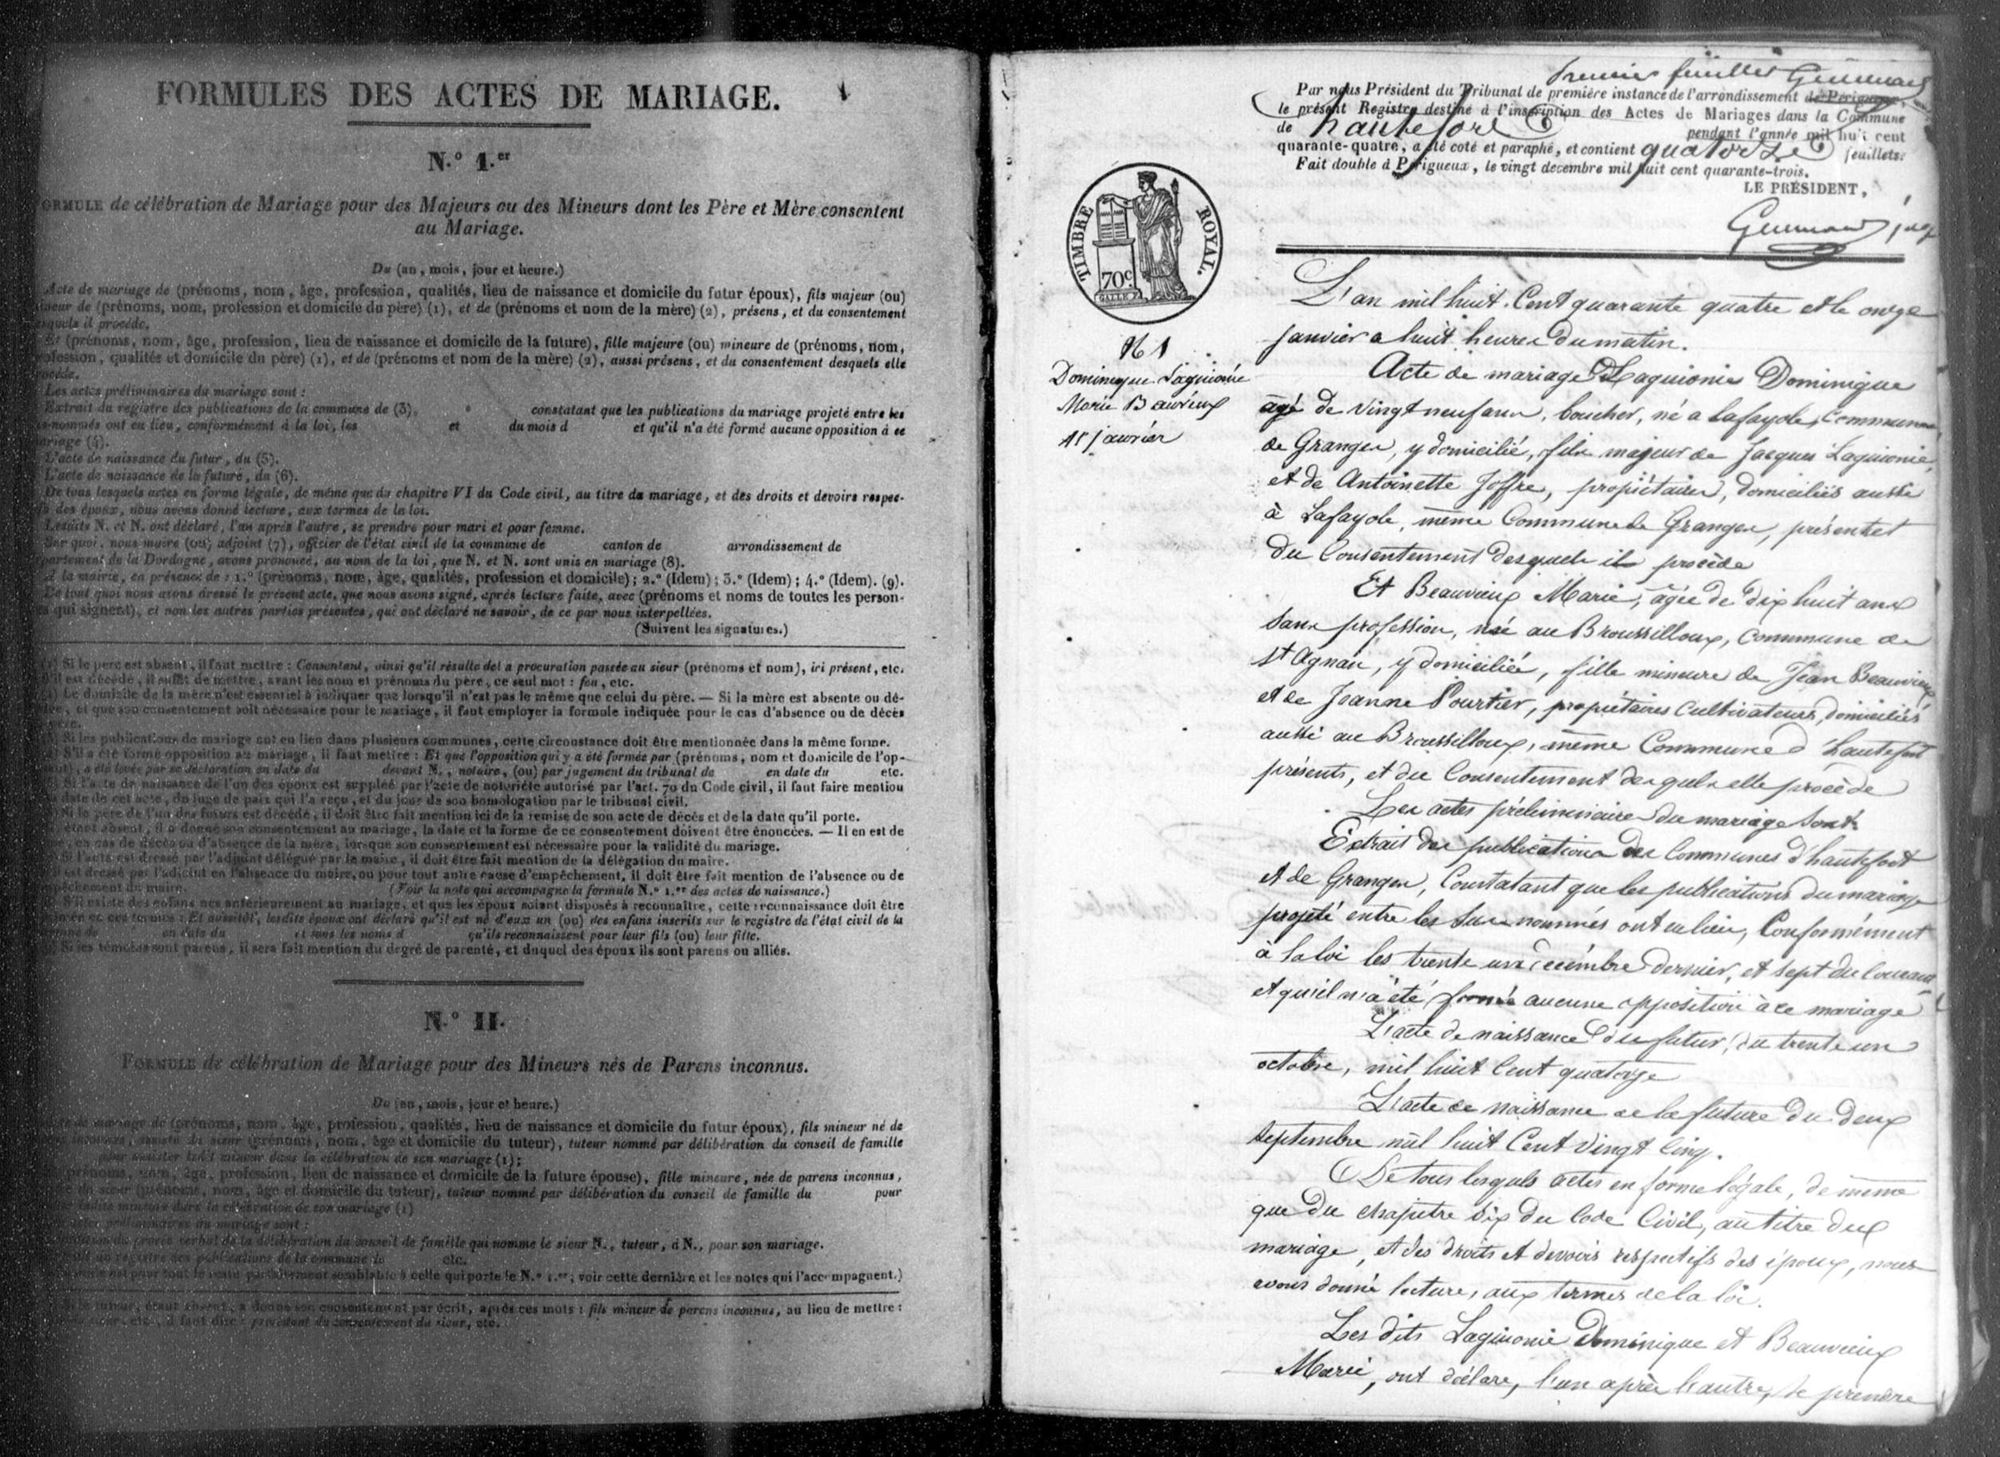 FORMULES DES ACTES DE MARIAGE.
N.º 1.er
FORMULE de célébration de Mariage pour des Majeurs ou des Mineurs dont les Père et Mère consentent
au Mariage.
Du (an, mois, jour et heure.)
Acte de mariage de (prénoms, nom, âge, profession, qualités, lieu de naissance et domicile du futur époux), fils majeur (ou)
mineur de (prénoms, nom, profession et domicile du père) (1), et de (prénoms et nom de la mère) (2), présens, et du consentement
desquels il procède.
Et (prénoms, nom, âge, profession, lieu de naissance et domicile de la future), fille majeure (ou) mineure de (prénoms, nom,
profession, qualités et domicile du père) (1), et de (prénoms et nom de la mère) (2), aussi présens, et du consentement desquels elle
procède.
Les actes préliminaires du mariage sont :
Extrait du registre des publications de la commune de (3), constatant que les publications du mariage projeté entre les
sus-nommés ont eu lieu, conformément à la loi, les et du mois d et qu'il n'a été formé aucune opposition à ce
mariage (4).
L'acte de naissance du futur, du (5).
L'acte de naissance de la future, du (6).
De tous lesquels actes en forme légale, de même que du chapitre VI du Code civil, au titre du mariage, et des droits et devoirs respec-
tifs des époux, nous avons donné lecture, aux termes de la loi.
Lesdits N. et N. ont déclaré, l'un après l'autre, se prendre pour mari et pour femme.
Sur quoi, nous maire (ou) adjoint (7), officier de l'état civil de la commune de canton de arrondissement de
département de la Dordogne, avons prononcé, au nom de la loi, que N. et N. sont unis en mariage (8).
A la mairie, en présence de : 1.º (prénoms, nom, âge, qualités, profession et domicile) ; 2.º (Idem) ; 3.º (Idem) ; 4.º (Idem). (9).
De tout quoi nous avons dressé le présent acte, que nous avons signé, après lecture faite, avec (prénoms et noms de toutes les person-
nes qui signent), et non les autres parties présentes, qui ont déclaré ne savoir, de ce par nous interpellées.
(Suivent les signatures.)
(1) Si le père est absent, il faut mettre : Consentant, ainsi qu'il résulte de la procuration passée au sieur (prénoms et nom), ici présent, etc.
S'il est décédé, il suffit de mettre, avant les nom et prénoms du père, ce seul mot : feu, etc.
(2) Le domicile de la mère n'est essentiel à indiquer que lorsqu'il n'est pas le même que celui du père. — Si la mère est absente ou dé-
cédée, et que son consentement soit nécessaire pour le mariage, il faut employer la formule indiquée pour le cas d'absence ou de décès
du père.
(3) Si les publications de mariage ont eu lieu dans plusieurs communes, cette circonstance doit être mentionnée dans la même forme.
(4) S'il a été formé opposition au mariage, il faut mettre : Et que l'opposition qui y a été formée par (prénoms, nom et domicile de l'op-
posant), a été levée par sa déclaration en date du devant N., notaire, (ou) par jugement du tribunal de en date du etc.
(5) Si l'acte de naissance de l'un des époux est suppléé par l'acte de notoriété autorisé par l'art. 70 du Code civil, il faut faire mention
de la date de cet acte, du juge de paix qui l'a reçu, et du jour de son homologation par le tribunal civil.
(6) Si le père de l'un des futurs est décédé, il doit être fait mention ici de la remise de son acte de décès et de la date qu'il porte.
S'il étant absent, il a donné son consentement au mariage, la date et la forme de ce consentement doivent être énoncées. — Il en est de
même, en cas de décès ou d'absence de la mère, lorsque son consentement est nécessaire pour la validité du mariage.
(7) Si l'acte est dressé par l'adjoint délégué par le maire, il doit être fait mention de la délégation du maire.
S'il est dressé par l'adjoint en l'absence du maire, ou pour tout autre cause d'empêchement, il doit être fait mention de l'absence ou de
l'empêchement du maire. (Voir la note qui accompagne la formule N.º 1.er des actes de naissance.)
(8) S'il existe des enfans nés antérieurement au mariage, et que les époux soient disposés à reconnaître, cette reconnaissance doit être
énoncée en ces termes : Et aussitôt, lesdits époux ont déclaré qu'il est né d'eux un (ou) des enfans inscrits sur le registre de l'état civil de la
commune de en date du et sous les noms d qu'ils reconnaissent pour leur fils (ou) leur fille.
(9) Si les témoins sont parens, il sera fait mention du degré de parenté, et duquel des époux ils sont parens ou alliés.
N.º II.
FORMULE de célébration de Mariage pour des Mineurs nés de Parens inconnus.
Du (an, mois, jour et heure.)
Acte de mariage de (prénoms, nom, âge, profession, qualités, lieu de naissance et domicile du futur époux), fils mineur né de
parens inconnus, assisté du sieur (prénoms, nom, âge et domicile du tuteur), tuteur nommé par délibération du conseil de famille
pour assister ledit mineur dans la célébration de son mariage (1) ;
Et (prénoms, nom, âge, profession, lieu de naissance et domicile de la future épouse), fille mineure, née de parens inconnus,
du sieur (prénoms, nom, âge et domicile du tuteur), tuteur nommé par délibération du conseil de famille du pour
ladite mineure dans la célébration de son mariage (1)
Les actes préliminaires du mariage sont :
du procès verbal de la délibération du conseil de famille qui nomme le sieur N., tuteur, à N., pour son mariage.
Extrait du registre des publications de la commune de etc.
est pour tout le reste parfaitement semblable à celle qui porte le N.º 1.er ; voir cette dernière et les notes qui l'accompagnent.)
(1) Si le tuteur, étant absent, a donné son consentement par écrit, après ces mots : fils mineur de parens inconnus, au lieu de mettre :
du sieur, etc., il faut dire : procédant du consentement du sieur, etc.
Premier feuillet Guumaud
Par nous Président du Tribunal de première instance de l'arrondissement de Périgueux,
le présent Registre destiné à l'inscription des Actes de Mariages dans la Commune
de hautefort pendant l'année mil huit cent
quarante-quatre, a été coté et paraphé, et contient quatorze feuillets.
Fait double à Périgueux, le vingt decembre mil huit cent quarante-trois.
LE PRÉSIDENT,
juge
TIMBRE ROYAL.
70c
GALLE
N 1
Dominique Laguionie
Marie Beauvieux
11 janvier
L'an mil huit Cent quarante quatre et le onze
janvier a huit heures du matin.
Acte de mariage de Laguionie Dominique
âgé de vingt neuf ans, boucher, né a Lafayole, Commune
de Granges, y domicilié, fils majeur de Jacques Laguionie,
et de Antoinette Joffre, propriétaires, domiciliés aussi
à Lafayole, même Commune de Granges, présents et
du Consentement desquels il procède
Et Beauvieux Marie, âgée de dix huit ans
sans profession, née au Broussilloux, Commune de
St Agnan, y domiciliée, fille mineure de Jean Beauvieux
et de Jeanne Pourtier, propriétaires cultivateurs, domiciliés
aussi au Broussilloux, même Commune d'hautefort
présents, et du Consentement desquels elle procède
Les actes préliminaires du mariage sont
Extrait des publications des Communes d'hautefort
et de Granges, Constatant que les publications du mariage
projeté entre les Sus nommés ont eu lieu, Conformément
à la loi les trente un décembre dernier, et sept du Courant
et qu'il n'a été formé aucune opposition à ce mariage
L'acte de naissance du futur, du trente un
octobre, mil huit Cent quatorze
L'acte de naissance de la future du deux
septembre mil huit Cent vingt Cinq.
De tous lesquels actes en forme légale, de même
que du chapitre six du Code Civil, au titre du
mariage, et des droits et devoirs respectifs des époux, nous
avons donné lecture, aux termes de la loi.
Les dits Laguionie Dominique et Beauvieux
Marie, ont déclaré, l'un après l'autre, se prendre